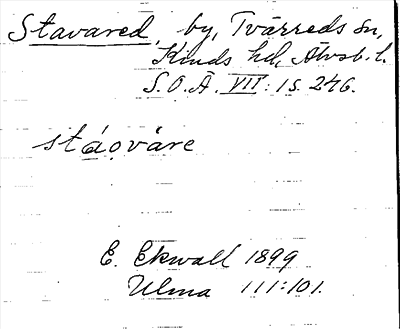 Stavared, by, Tvärreds sn,
Kinds hd, Älvsb. l.
S.O.Ä. VII: 1 s. 246.
stáo̩våre
E. Ekwall 1899
Ulma 111:101.